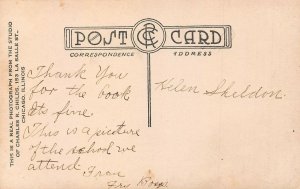 POST CARD
CORRESPONDENCE
ADDRESS
THIS IS A REAL PHOTOGRAPH FROM THE STUDIO
OF CHARLES R. CHILDS, 155 LA SALLE ST.,
CHICAGO, ILLINOIS
Thank You
for the book
Its fine
This is a picture
of the school we
attend
From
Helen Sheldon